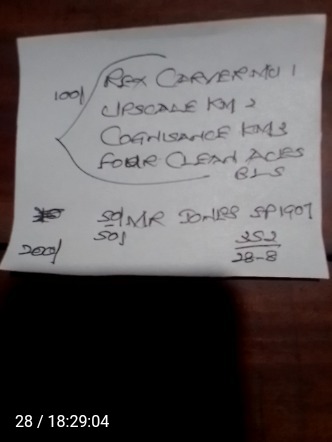 100/ REX CARVER MU 1
UPSCALE KM 2
COGNISANCE KM3
FOUR CLEAN ACES
BLS
50/ MR JONES SP1907
50/
200/
352
28-8
28 / 18:29:04